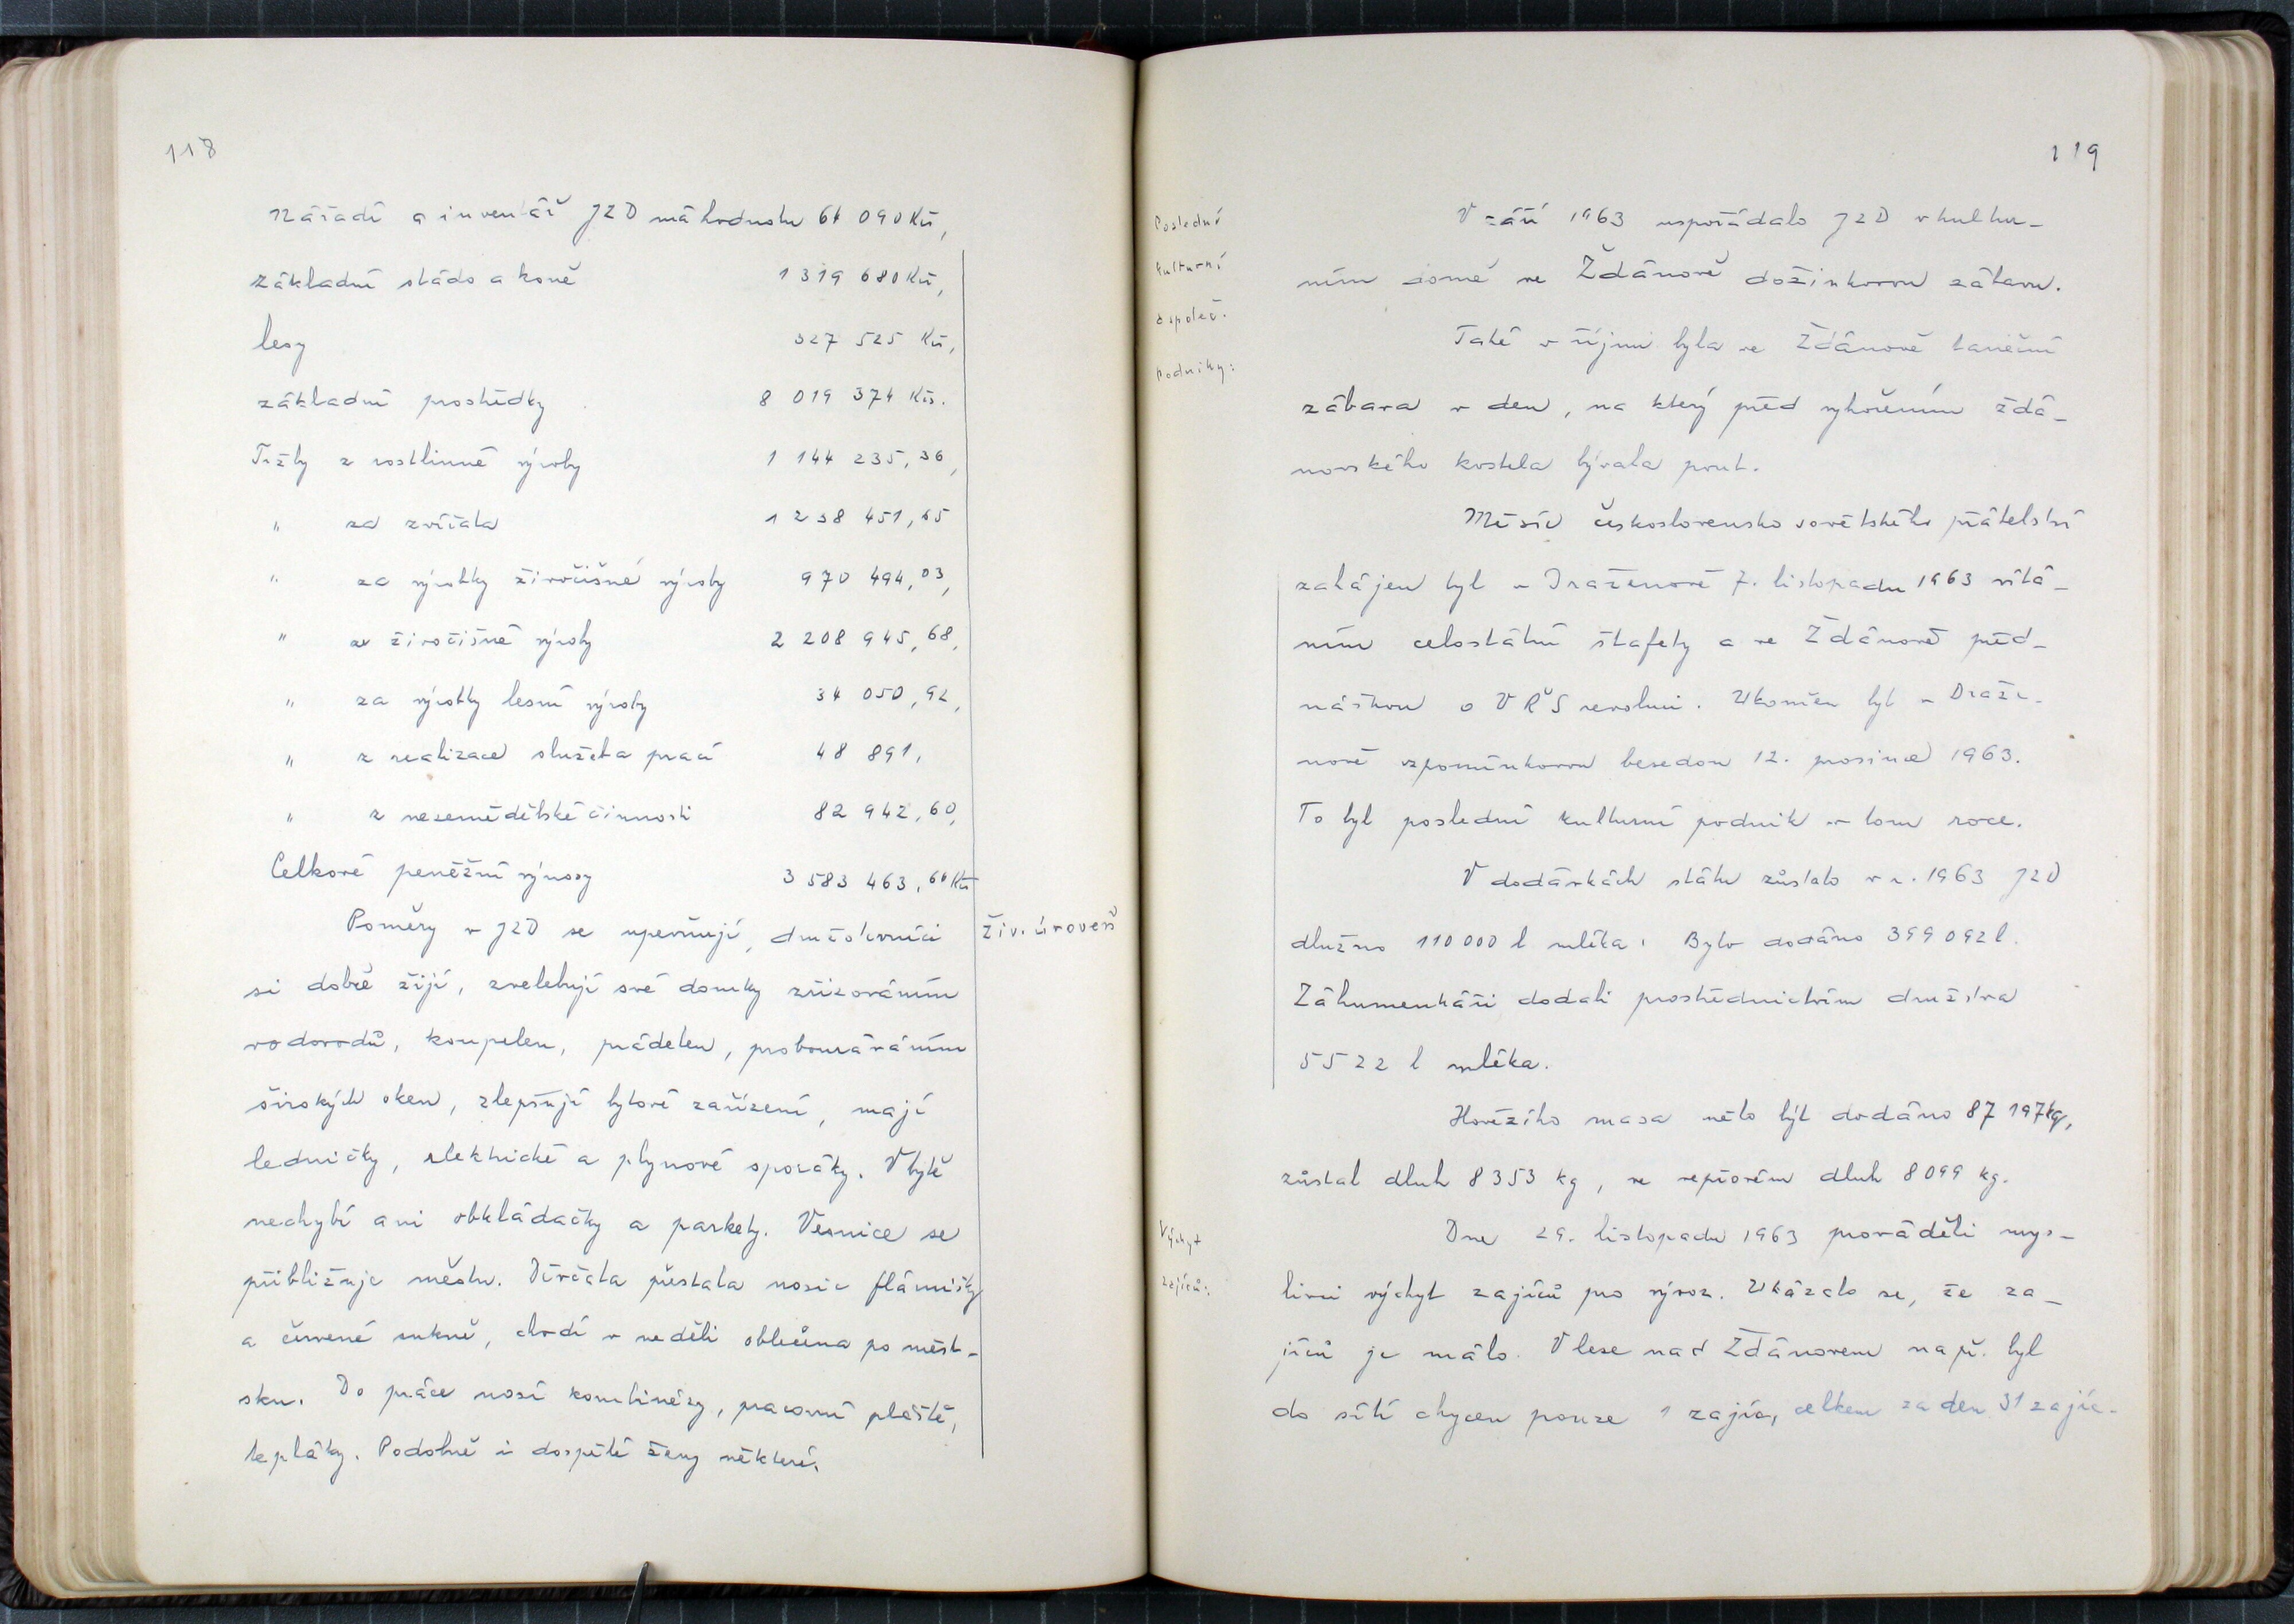 118
Nářadí a inventář JZD má hodnotu 61 090 Kčs,
základní stádo a koně 1 319 680 Kčs,
lesy 327 525 Kčs,
základní prostředky 8 019 374 Kčs.
Tržby z rostlinné výroby 1 144 235,36,
" za zvířata 1 238 451,65
" za výrobky živočišné výroby 970 494,03,
" ze živočišné výroby 2 208 945,68,
" za výrobky lesní výroby 34 050,92,
" z realizace služeb a prací 48 891,
" z nezemědělské činnosti 82 942,60,
Celkové peněžní výnosy 3 583 463,66 Kčs
Poměry v JZD se upevňují, družstevníci
Živ. úroveň
si dobře žijí, zvelebují své domky zřizováním
vodovodů, koupelen, prádelen, probouráváním
širokých oken, zlepšují bytové zařízení, mají
ledničky, elektrické a plynové sporáky. V bytě
nechybí ani obkládačky a parkety. Vesnice se
přibližuje městu. Děvčata přestala nosit flámišky
a červené sukně, chodí v neděli oblečena po měst-
sku. Do práce nosí kombinézy, pracovní pláště,
tepláky. Podobně i dospělé ženy některé.
119
Poslední
kulturní
a společ.
podniky:
V září 1963 uspořádalo JZD v kultur-
ním domě ve Ždánově dožínkovou zábavu.
Také v říjnu byla ve Ždánově taneční
zábava v den, na který před vyhořením ždá-
novského kostela bývala pouť.
Měsíc československo sovětského přátelství
zahájen byl v Draženově 7. listopadu 1963 vítá-
ním celostátní štafety a ve Ždánově před-
náškou o VŘS revoluci. Ukončen byl v Draže-
nově vzpomínkovou besedou 12. prosince 1963.
To byl poslední kulturní podnik v tom roce.
V dodávkách státu zůstalo v r. 1963 JZD
dlužno 110 000 l mléka. Bylo dodáno 399 092 l.
Záhumenkáři dodali prostřednictvím družstva
5522 l mléka.
Hovězího masa mělo být dodáno 87 197 kg,
zůstal dluh 8353 kg, ve vepřovém dluh 8099 kg.
Výchyt
zajíců:
Dne 29. listopadu 1963 prováděli mys-
livci výchyt zajíců pro vývoz. Ukázalo se, že za-
jíců je málo. V lese nad Ždánovem např. byl
do sítí chycen pouze 1 zajíc, celkem za den 31 zajíc.